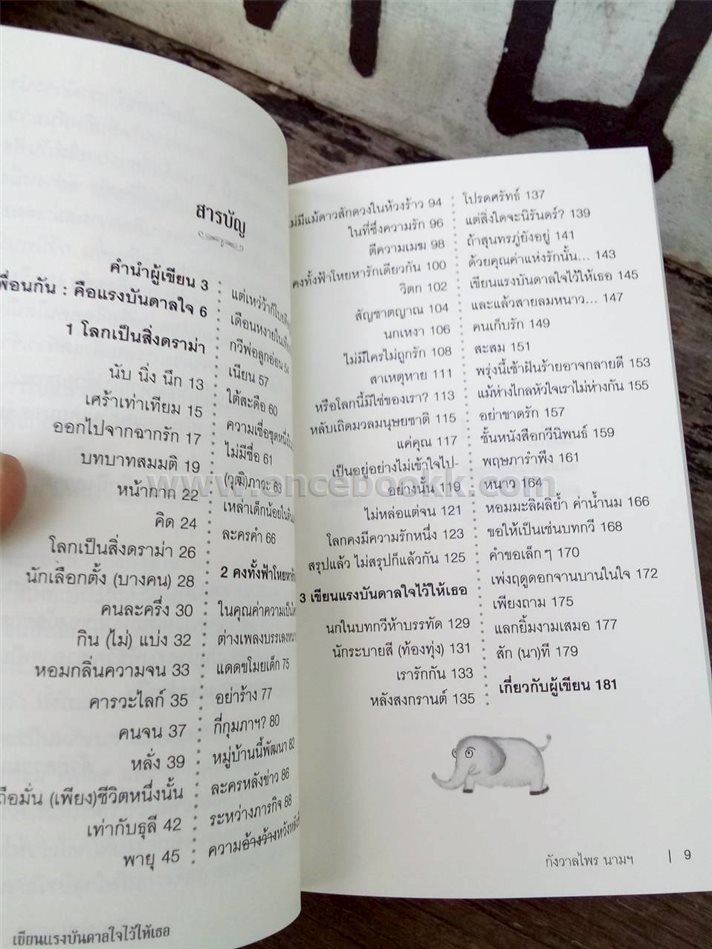 สารบัญ
คำนำผู้เขียน 3
เพื่อนกัน : คือแรงบันดาลใจ 6
1 โลกเป็นสิ่งดราม่า
นับ นิ่ง นึก 13
เศร้าเท่าเทียม 15
ออกไปจากฉากรัก 17
บทบาทสมมติ 19
หน้ากาก 22
คิด 24
โลกเป็นสิ่งดราม่า 26
นักเลือกตั้ง (บางคน) 28
คนละครึ่ง 30
กิน (ไม่) แบ่ง 32
หอมกลิ่นความจน 33
คารวะไลก์ 35
คนจน 37
หลั่ง 39
ถือมั่น (เพียง)ชีวิตหนึ่งนั้น
เท่ากับธุลี 42
พายุ 45
แต่เหว่ว้าก็ใบ
เดือนหงายใน
กวีพ่อลูกอ่อน 54
เนียน 57
ใต้สะดือ 60
ความเชื่อชุดหนึ่ง
ไม่มีชื่อ 61
(วุฒิ)ภาวะ 63
เหล่าเด็กน้อยใน
ละครคำ 66
2 คงทั้งฟ้าโหยหา
ในคุณค่าความเป็น
ต่างเพลงบรรเลง
แดดขโมยเด็ก 75
อย่าร้าง 77
กี่กุมภาฯ? 80
หมู่บ้านนี้พัฒนา 82
ละครหลังข่าว 86
ระหว่างภารกิจ 88
ความอ้างว้างหวัง
เขียนแรงบันดาลใจไว้ให้เธอ
ไม่มีแม้ดาวสักดวงในห้วงร้าว 94
ในที่ซึ่งความรัก 96
ตีความเมฆ 98
คงทั้งฟ้าโหยหารักเดียวกัน 100
วิตก 102
สัญชาตญาณ 104
นกเหงา 106
ไม่มีใครไม่ถูกรัก 108
สาเหตุหาย 111
หรือโลกนี้มิใช่ของเรา? 113
หลับเถิดมวลมนุษยชาติ 115
แค่คุณ 117
เป็นอยู่อย่างไม่เข้าใจไป-
อย่างนั้น 119
ไม่หล่อแต่จน 121
โลกคงมีความรักหนึ่ง 123
สรุปแล้ว ไม่สรุปก็แล้วกัน 125
3 เขียนแรงบันดาลใจไว้ให้เธอ
นกในบทกวีห้าบรรทัด 129
นักระบายสี (ท้องทุ่ง) 131
เรารักกัน 133
หลังสงกรานต์ 135
โปรดศรัทธ์ 137
แต่สิ่งใดจะนิรันดร์? 139
ถ้าสุนทรภู่ยังอยู่ 141
ด้วยคุณค่าแห่งรักนั้น... 143
เขียนแรงบันดาลใจไว้ให้เธอ 145
และแล้วสายลมหนาว... 147
คนเก็บรัก 149
สะสม 151
พรุ่งนี้เช้าฝันร้ายอาจกลายดี 153
แม้ห่างไกลหัวใจเราไม่ห่างกัน 155
อย่าขาดรัก 157
ชั้นหนังสือกวีนิพนธ์ 159
พฤษภารำพึง 161
หนาว 164
หอมมะลิผลิย้ำ ค่าน้ำนม 166
ขอให้เป็นเช่นบทกวี 168
คำขอเล็กๆ 170
เพ่งฤดูดอกจานบานในใจ 172
เพียงถาม 175
แลกยิ้มงามเสมอ 177
สัก (นา)ที 179
เกี่ยวกับผู้เขียน 181
กังวาลไพร นามฯ | 9
www.oncebookk.com